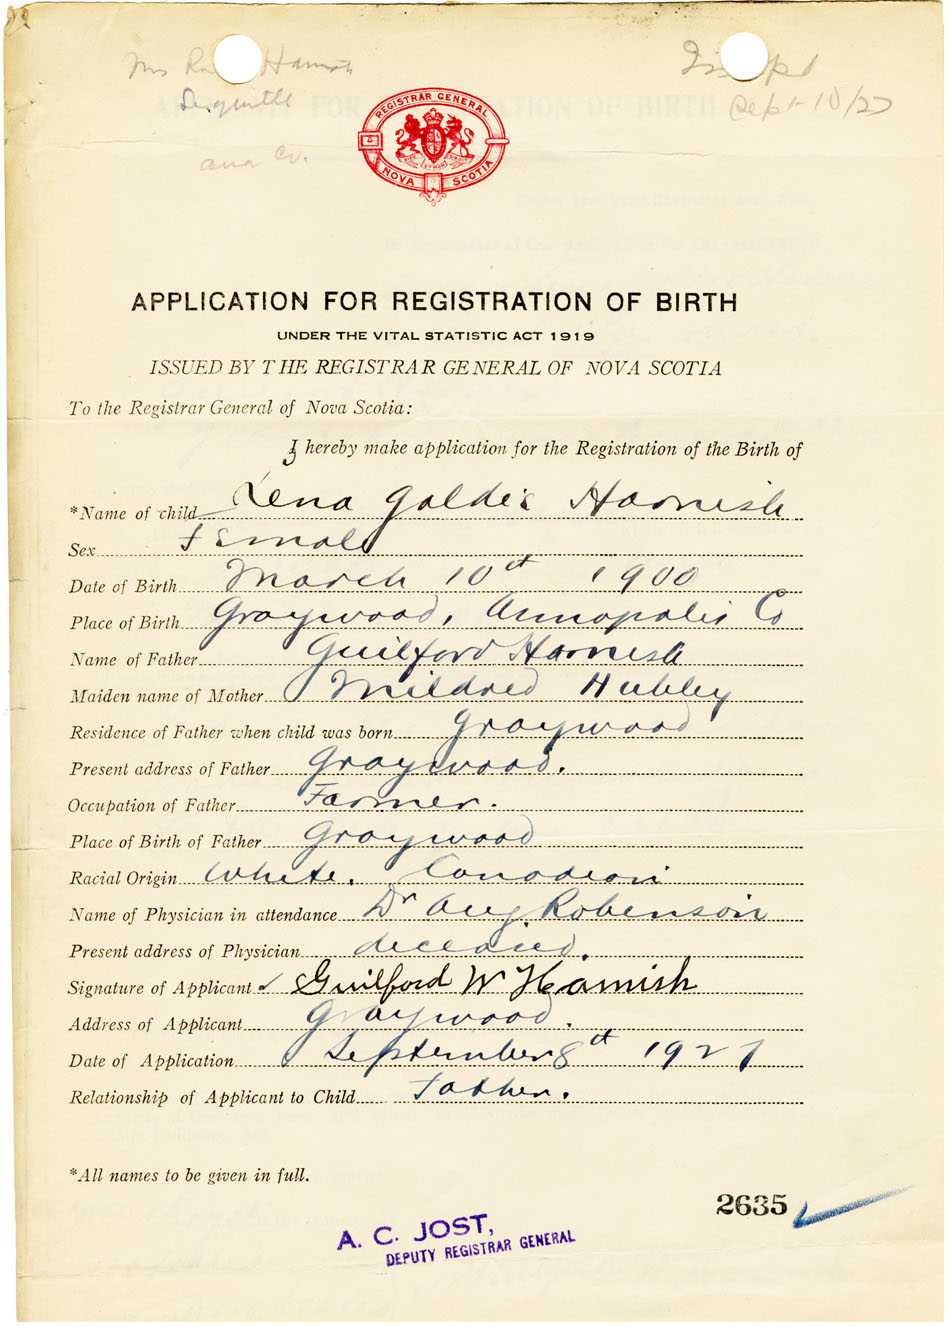 Mrs Harnish
Sept 10/27
REGISTRAR GENERAL
NOVA SCOTIA
APPLICATION FOR REGISTRATION OF BIRTH
UNDER THE VITAL STATISTIC ACT 1919
ISSUED BY THE REGISTRAR GENERAL OF NOVA SCOTIA
To the Registrar General of Nova Scotia:
I hereby make application for the Registration of the Birth of
*Name of child Lena Goldie Harnish
Sex Female
Date of Birth March 10th 1900
Place of Birth Graywood, Annapolis Co
Name of Father Guilford Harnish
Maiden name of Mother Mildred Hubley
Residence of Father when child was born Graywood
Present address of Father Graywood.
Occupation of Father Farmer.
Place of Birth of Father Graywood
Racial Origin White. Canadian
Name of Physician in attendance Dr Aug Robinson
Present address of Physician deceased.
Signature of Applicant Guilford W Harnish
Address of Applicant Graywood.
Date of Application September 8th 1927
Relationship of Applicant to Child Father.
*All names to be given in full.
2635
A. C. JOST,
DEPUTY REGISTRAR GENERAL